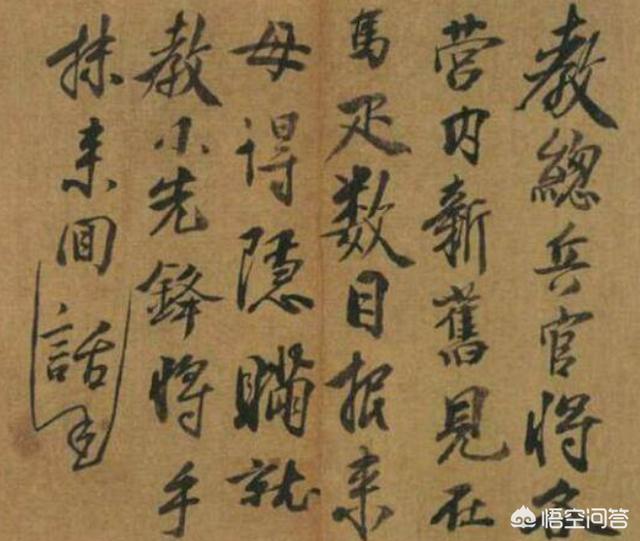 教總兵官將各
营内新舊見在
馬疋数目报来
毋得隐瞞就
教小先鋒將手
抹来囬話
悟空问答